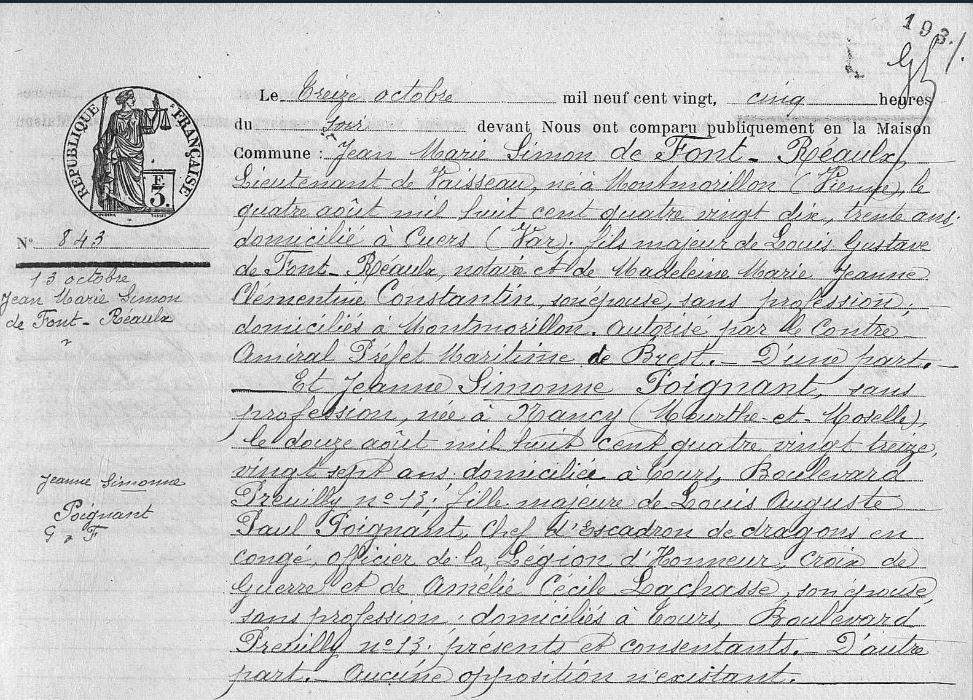 193/.
95
RÉPUBLIQUE FRANÇAISE
F.
3.
Le Treize octobre mil neuf cent vingt, cinq heures
du soir devant Nous ont comparu publiquement en la Maison
Commune : Jean Marie Simon de Font-Réaulx,
Lieutenant de Vaisseau, né à Montmorillon (Vienne), le
quatre août mil huit cent quatre vingt dix, trente ans;
domicilié à Cuers (Var). fils majeur de Louis Gustave
de Font-Réaulx, notaire et de Madeleine Marie Jeanne
Clémentine Constantin, son épouse, sans profession;
domiciliés à Montmorillon. autorisé par le Contre
Amiral Préfet Maritime de Brest. _ D'une part. _
_ Et Jeanne Simonne Poignant, sans
profession, née à Nancy (Meurthe-et-Moselle),
le douze août mil huit cent quatre vingt treize,
vingt sept ans domiciliée à Tours, Boulevard
Preuilly no 13; fille majeure de Louis Auguste
Paul Poignant, Chef d'Escadron de dragons en
congé, officier de la Légion d'Honneur, croix de
Guerre et de Amélie Cécile Lachasse, son épouse,
sans profession; domiciliés à Tours, Boulevard
Preuilly no 13; présents et consentants. _ D'autre
part. _ Aucune opposition n'existant.
No 843
13 octobre
Jean Marie Simon
de Font-Réaulx
Jeanne Simonne
Poignant
G F